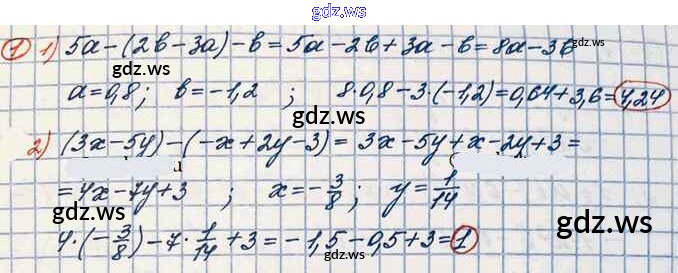 gdz.ws
1 1) 5a-(2b-3a)-b=5a-2b+3a-b=8a-3b
gdz.ws
a=0,8; b=-1,2 ; 8·0,8-3·(-1,2)=0,64+3,6=4,24
gdz.ws gdz.ws
2) (3x-5y)-(-x+2y-3)= 3x-5y+x-2y+3=
=4x-7y+3 ; x=-3/8; y=1/14
gdz.ws gdz.ws
4·(-3/8)-7·1/14+3=-1,5-0,5+3=1
gdz.ws